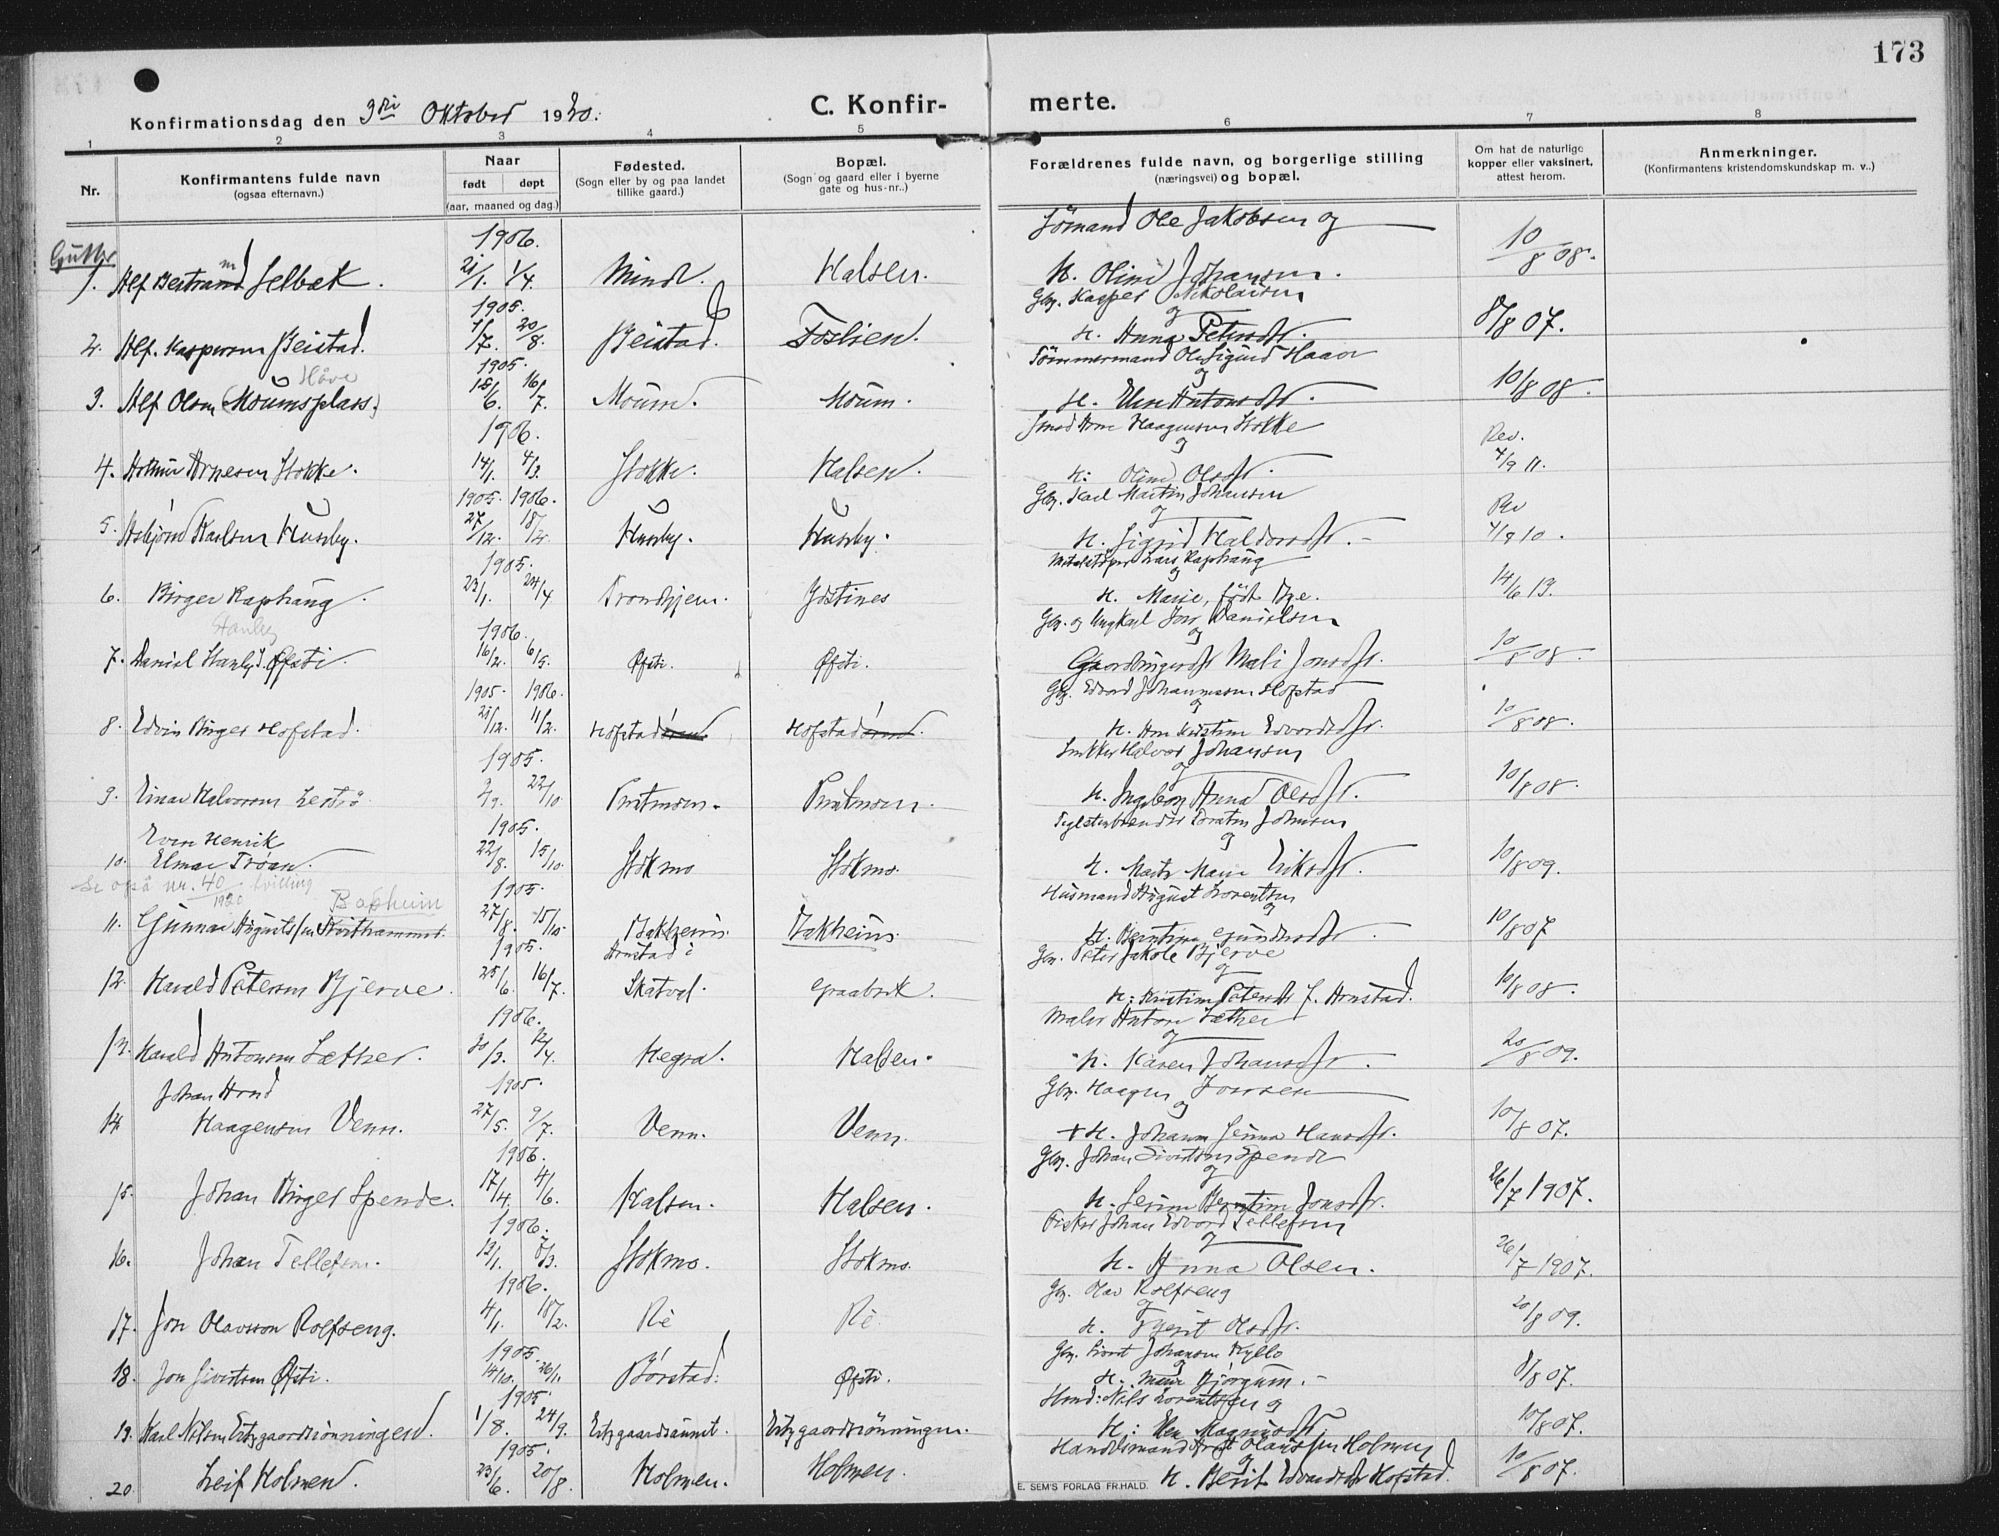 173
Konfirmationsdag den 3die Oktober 1920.
C. Konfirmerte.
1 2 3 4 5 6 7 8
Nr.
Konfirmantens fulde navn
(ogsaa efternavn.)
Naar
født døpt
(aar, maaned og dag.)
Fødested.
(Sogn eller by og paa landet
tillike gaard.)
Bopæl.
(Sogn og gaard eller i byerne
gate og hus-nr.)
Forældrenes fulde navn, og borgerlige stilling
(næringsvei) og bopæl.
Om hat de naturlige
kopper eller vaksinert,
attest herom.
Anmerkninger.
(Konfirmantens kristendomskundskap m. v.)
Gutter
1906. Sømand Ole Jakobsen og
1. Alf Bertrand Selbæk. 21/1. 1/4. Halsen. K. Oline Johansen. 10/8 08.
1905. Gbr. Kasper Nikolaisen og
2. Alf Kaspersen Beistad. 1/7. 20/8. Beistad. Foslien. K. Anna Petersdtr. 8/8 07.
Håve
1905. Tømmermand Ole Sigurd Haave og
3. Alf Olsen Moumsplass. 18/6. 16/7. Moum. Moum. K. Antonsdtr. 10/8 08.
1906. Smed Arne Haagensen Stokke og
4. Arthur Arnesen Stokke. 14/1. 4/3. Stokke. Halsen. K. Oline Olsdtr. Rev. 4/9 11.
1905. 1906. Gbr. Karl Martin Johansen og
5. Asbjørn Karlsen Husby. 27/12. 18/2. Husby. Husby. K. Sigrid Haldorsdtr. Rev 4/9 10.
1905. Lars Raphaug og
6. Birger Raphaug. 23/1. 24/4 Trondhjem. Ydstines K. Marie, født Bye. 14/6 19.
Stanley
1906. Gbr. og Ungkarl Jon Danielsen og
7. Daniel Øfsti. 16/2. 6/5. Øfsti. Øfsti. Gaardbrugerdtr Mali Jonsdtr. 10/8 08.
1905. 1906. Gbr. Edvard Johannessen Hofstad og
8. Edvin Birger Hofstad. 21/12. 11/2. Hofstad Hofstad K. Edvardsdtr. 10/8 08.
1905. Snikker Halvor Johansen og
9. Einar Halvorsen 2/9. 22/10. K. Ingeborg Anna Olsdtr. 10/8 08.
Even Henrik
1905. Johnsen og
10. Elmar Trøan. 22/8. 15/10. Stokmo Stokmo. K. Marie Eriksdtr. 10/8 09.
Se også nr. 40/1920 tvilling
Bakheim
1905. Husmand August Lorentsen og
11. Gunnar Augustsen 27/8. 15/10. Bakheim. Bakheim. K. Gundersdtr. 10/8 07
1905. Arnstad i Gbr. Peter Jakob Bjerve og
12. Harald Petersen Bjerve. 25/6. 16/7. Skatval. Graabrek. K. Kristine Petersdtr f. Arnstad. 10/8 08.
1906. Maler Anton Sæther og
13. Harald Antonsen Sæther. 30/3. 12/4. Hegra. Halsen. K. Karen Johansdtr. 20/8 09.
Johan Arnd
1905. Gbr. Haagen Jonsen og
14. Haagensen Venn. 27/5. 9/7. Venn. Venn. + K. Johanna Hansdtr. 10/8 07.
1906. Gbr. Johan Sivertsen Spende og
15. Johan Birger Spende. 17/4. 4/6. Halsen. Halsen. K. Jonsdtr. 26/7 1907.
1906. Fisker Johan Edvard Tellefsen og
16. Johan Tellefsen. Stokmo. Stokmo. K. Anna Olsen. 26/7 1907.
1906. Gbr. Olav Rolfseng og
17. Jon Olavsson Rolfseng. 4/1. 18/2. Ré Ré. K. Olsdtr. 20/8 09.
1905. Gbr. Sivert Johansen Kyllo og
18. Jon Sivertsen Øfsti. 14/10. 26/11. Børstad. Øfsti. K. Bjørgum. 8/8 07.
1905. Nils Lorentsen og
19. Karl Nilsen 1/8. 24/9. K. Magnusdtr. 10/8 07.
1905. Handelsmand Olaussen Holmen og
20. Leif Holmen. 23/6. 20/8. Holmen. Holmen. K. Berit Edvardsdtr Hofstad. 10/8 07.
E. SEM'S FORLAG FR.HALD.